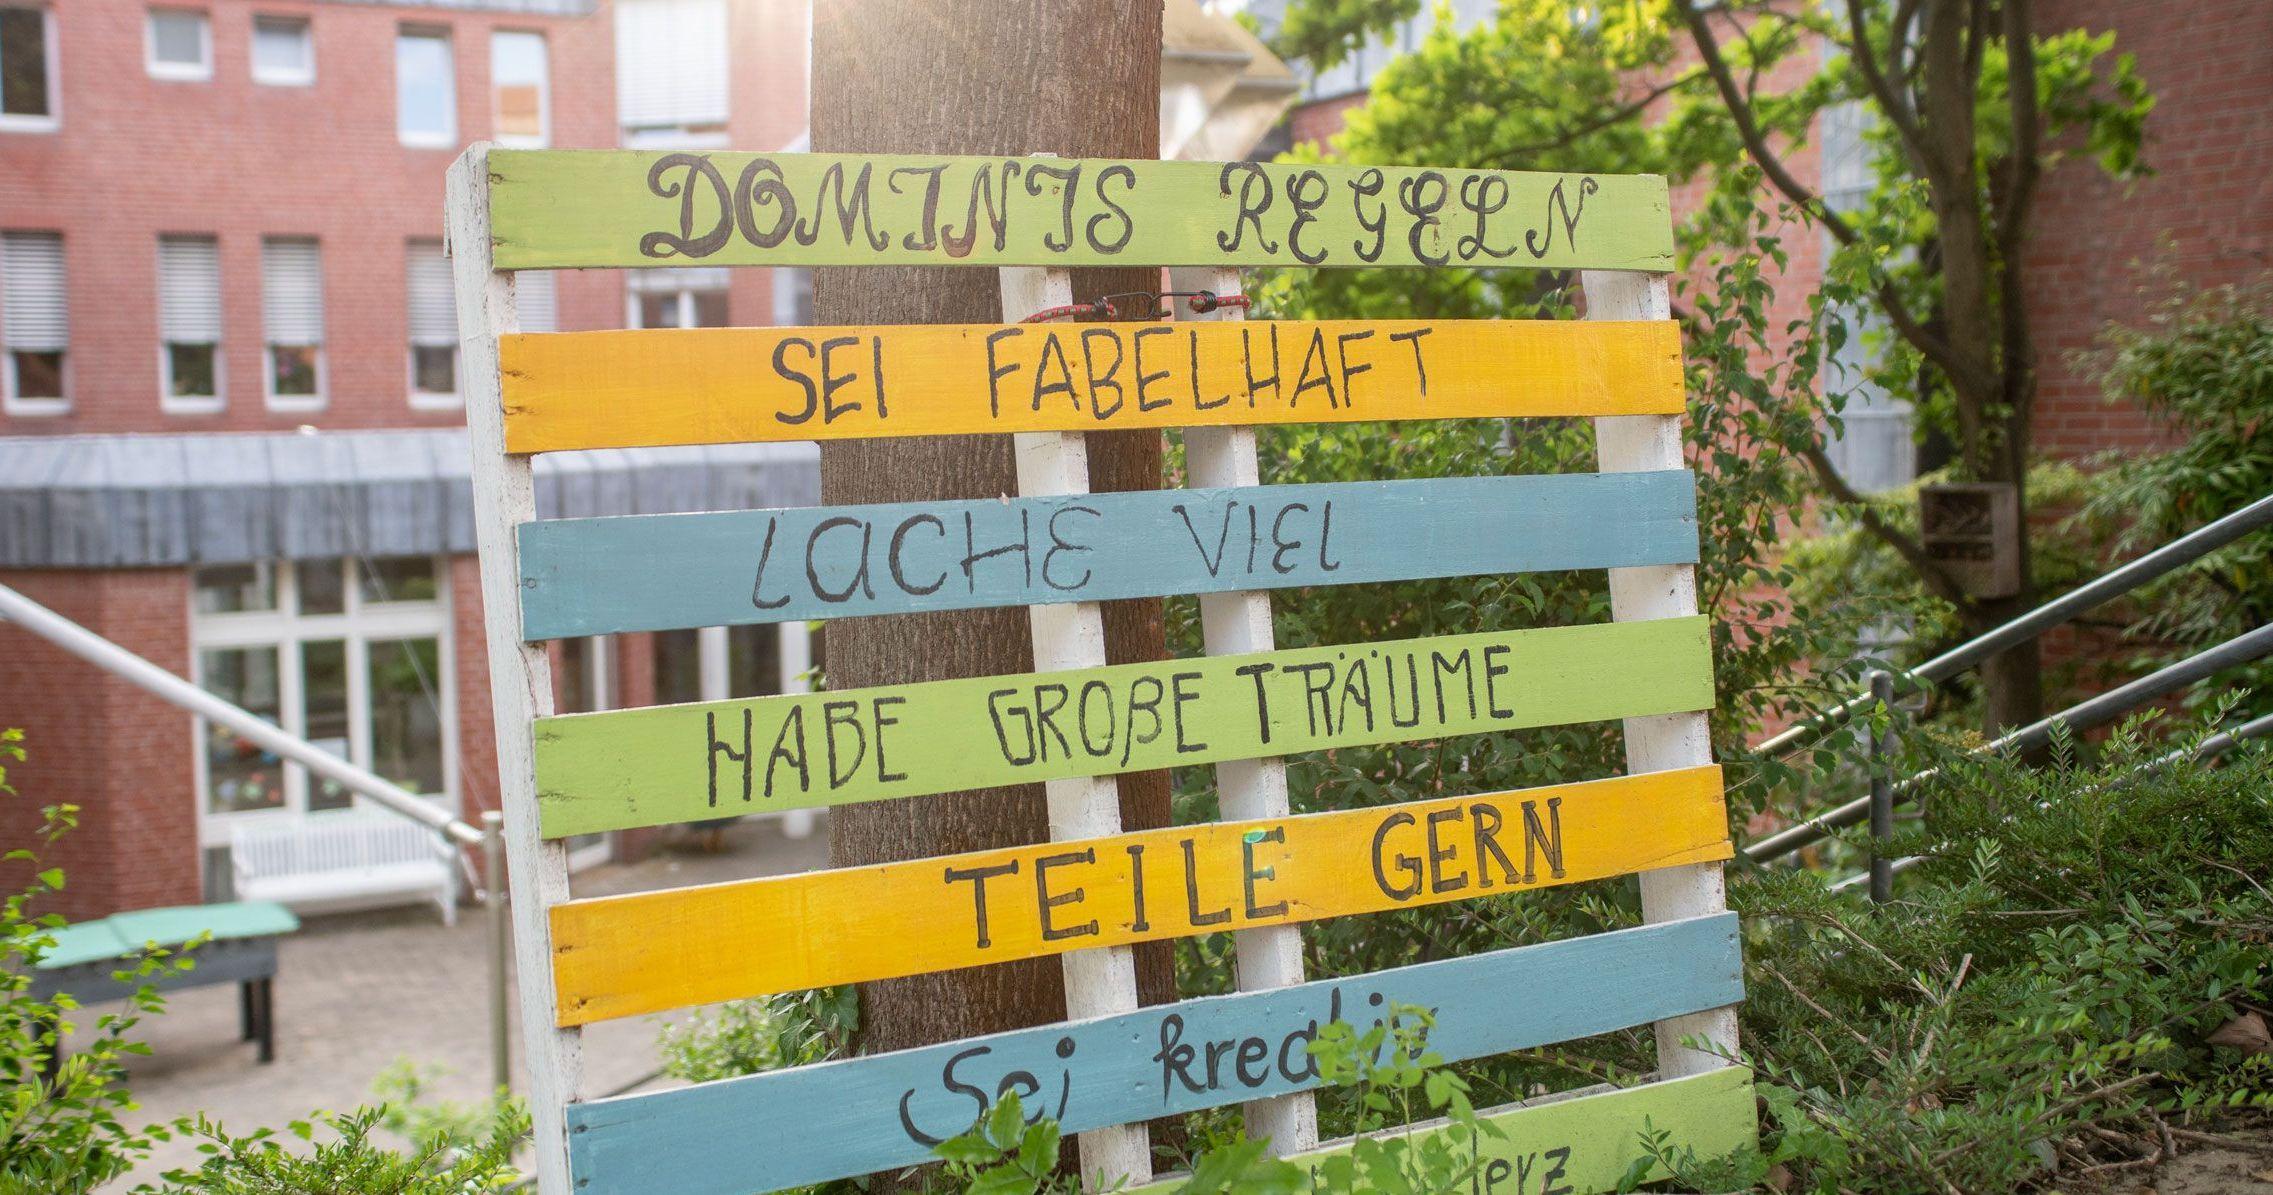 DOMINIS REGELN
SEI FABELHAFT
LACHE VIEL
HABE GROßE TRÄUME
TEILE GERN
Sei kreativ
Herz